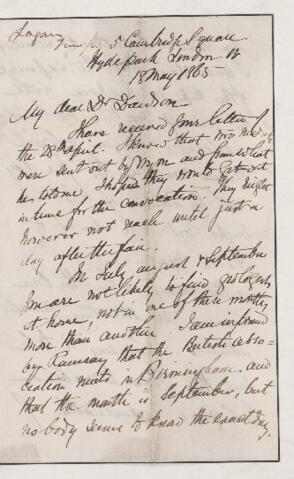 Logan
5 Cambridge Square
Hyde Park London W
18 May 1865
My dear Dr Dawson
I have received your letter of
the 28th April. I know that two
were sent out by and from what
he told me I hope they would get out
in time for the convocation. They might
however not reach until just a
day after the fair.
In July August & September
you are not likely to find geologists
at home, not in one of these months
more than another. I am informed
by Ramsay that the British Asso-
ciation meets in Birmingham, and
that the month is September, but
nobody seems to know the exact day.